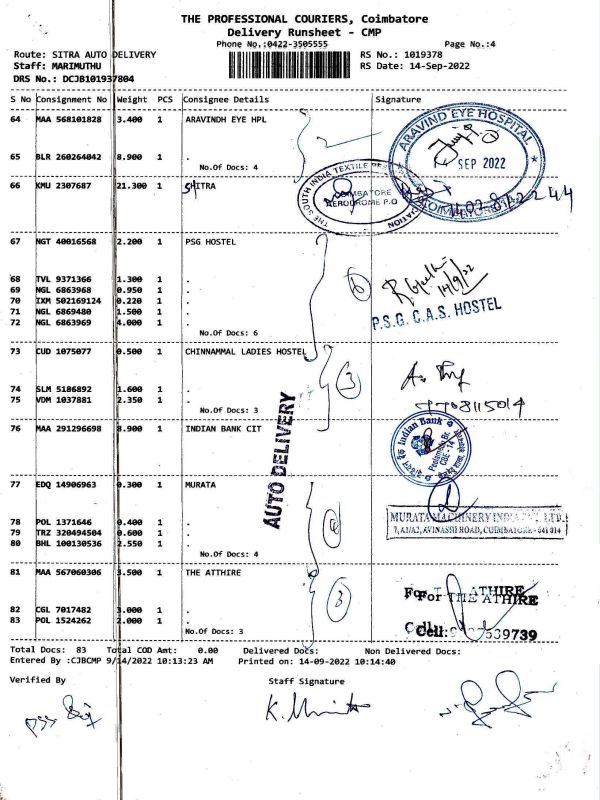 THE PROFESSIONAL COURIERS, Coimbatore
Delivery Runsheet - CMP
Phone No.:0422-3505555 Page No.:4
Route: SITRA AUTO DELIVERY RS No.: 1019378
Staff: MARIMUTHU RS Date: 14-Sep-2022
DRS No.: DCJB101937804
S No Consignment No Weight PCS Consignee Details Signature
64 MAA 568101828 3.400 1 ARAVINDH EYE HPL
ARAVIND EYE HOSPITAL
SEP 2022
COIMBATORE
65 BLR 260264042 8.900 1 .
No.Of Docs: 4
66 KMU 2307687 21.300 1 SHITRA
THE SOUTH INDIA TEXTILE
COIMBATORE
AERODROME P.O
67 NGT 40016568 2.200 1 PSG HOSTEL
68 TVL 9371366 1.300 1 .
69 NGL 6863968 0.950 1 .
70 IXM 502169124 0.220 1 .
71 NGL 6869480 1.500 1 .
72 NGL 6863969 4.000 1 .
No.Of Docs: 6
6
14/9/22
P.S.G. C.A.S. HOSTEL
73 CUD 1075077 0.500 1 CHINNAMMAL LADIES HOSTEL
3
74 SLM 5186892 1.600 1 .
75 VDM 1037881 2.350 1 .
No.Of Docs: 3
AUTO DELIVERY
76 MAA 291296698 8.900 1 INDIAN BANK CIT
Indian Bank
77 EDQ 14906963 0.300 1 MURATA
78 POL 1371646 0.400 1 .
79 TRZ 320494504 0.600 1 .
80 BHL 100130536 2.550 1 .
No.Of Docs: 4
4
MURATA MACHINERY INDIA PVT. LTD.
7, A1/A2, AVINASHI ROAD, COIMBATORE - 641 014
81 MAA 567060306 3.500 1 THE ATTHIRE
82 CGL 7017482 3.000 1 .
83 POL 1524262 2.000 1 .
No.Of Docs: 3
3
For THE ATHIRE
Cell:
Total Docs: 83 Total COD Amt: 0.00 Delivered Docs: Non Delivered Docs:
Entered By :CJBCMP 9/14/2022 10:13:23 AM Printed on: 14-09-2022 10:14:40
Verified By Staff Signature